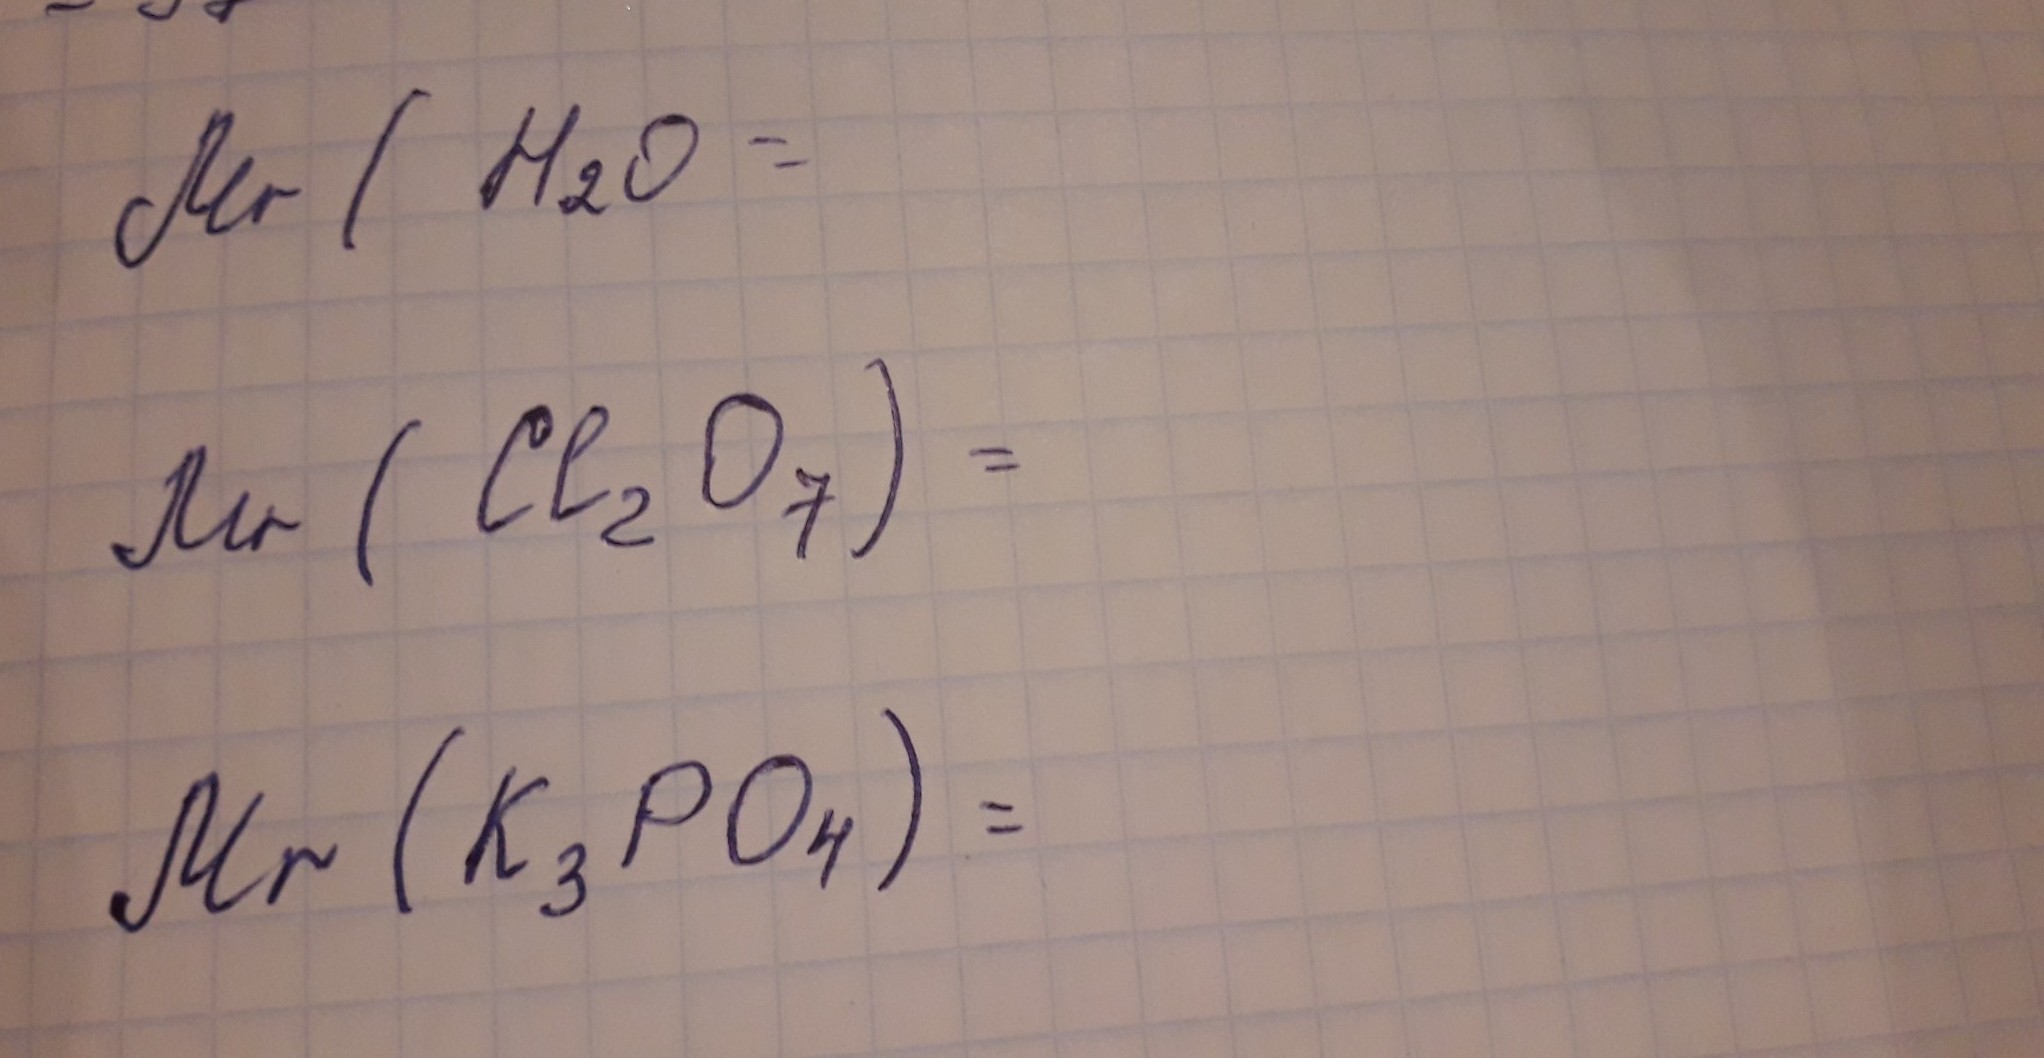 Mr ( H₂O =
Mr ( Cl₂O₇ ) =
Mr ( K₃PO₄ ) =